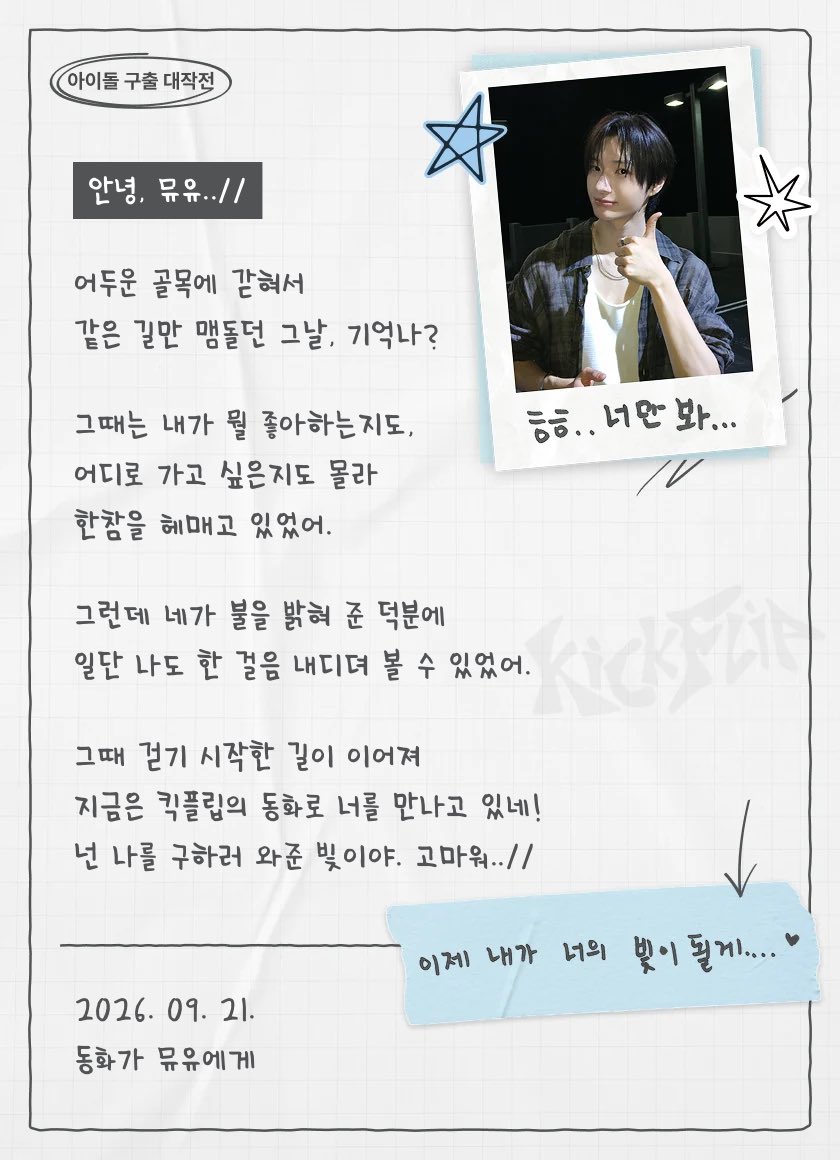 아이돌 구출 대작전
안녕, 뮤유..//
흠흠.. 너만 봐...
어두운 골목에 갇혀서
같은 길만 맴돌던 그날, 기억나?
그때는 내가 뭘 좋아하는지도,
어디로 가고 싶은지도 몰라
한참을 헤매고 있었어.
그런데 네가 불을 밝혀 준 덕분에
일단 나도 한 걸음 내디뎌 볼 수 있었어.
KickFlip
그때 걷기 시작한 길이 이어져
지금은 킥플립의 동화로 너를 만나고 있네!
넌 나를 구하러 와준 빛이야. 고마워..//
이제 내가 너의 빛이 될게....♥
2026. 09. 21.
동화가 뮤유에게